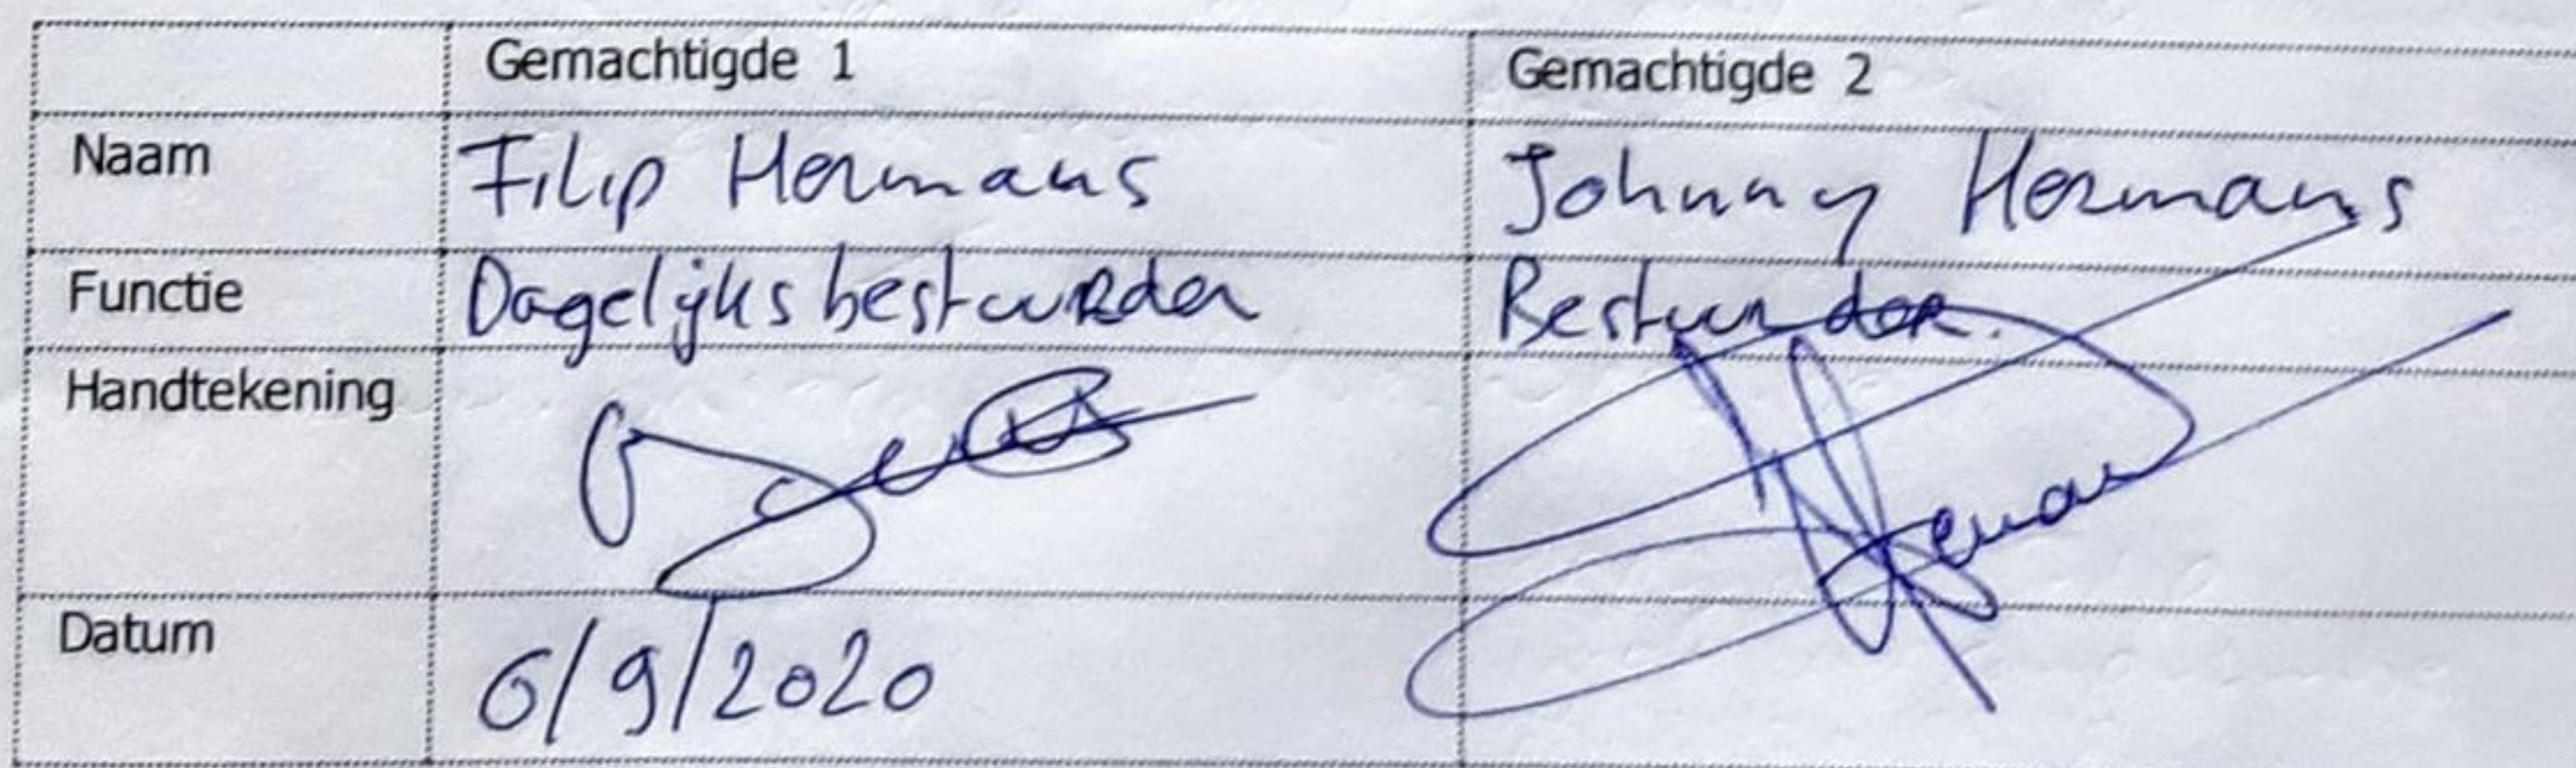 Gemachtigde 1 Gemachtigde 2
Naam Filip Hermans Johnny Hermans
Functie Dagelijks bestuurder Bestuurder.
Handtekening
Datum 6/9/2020